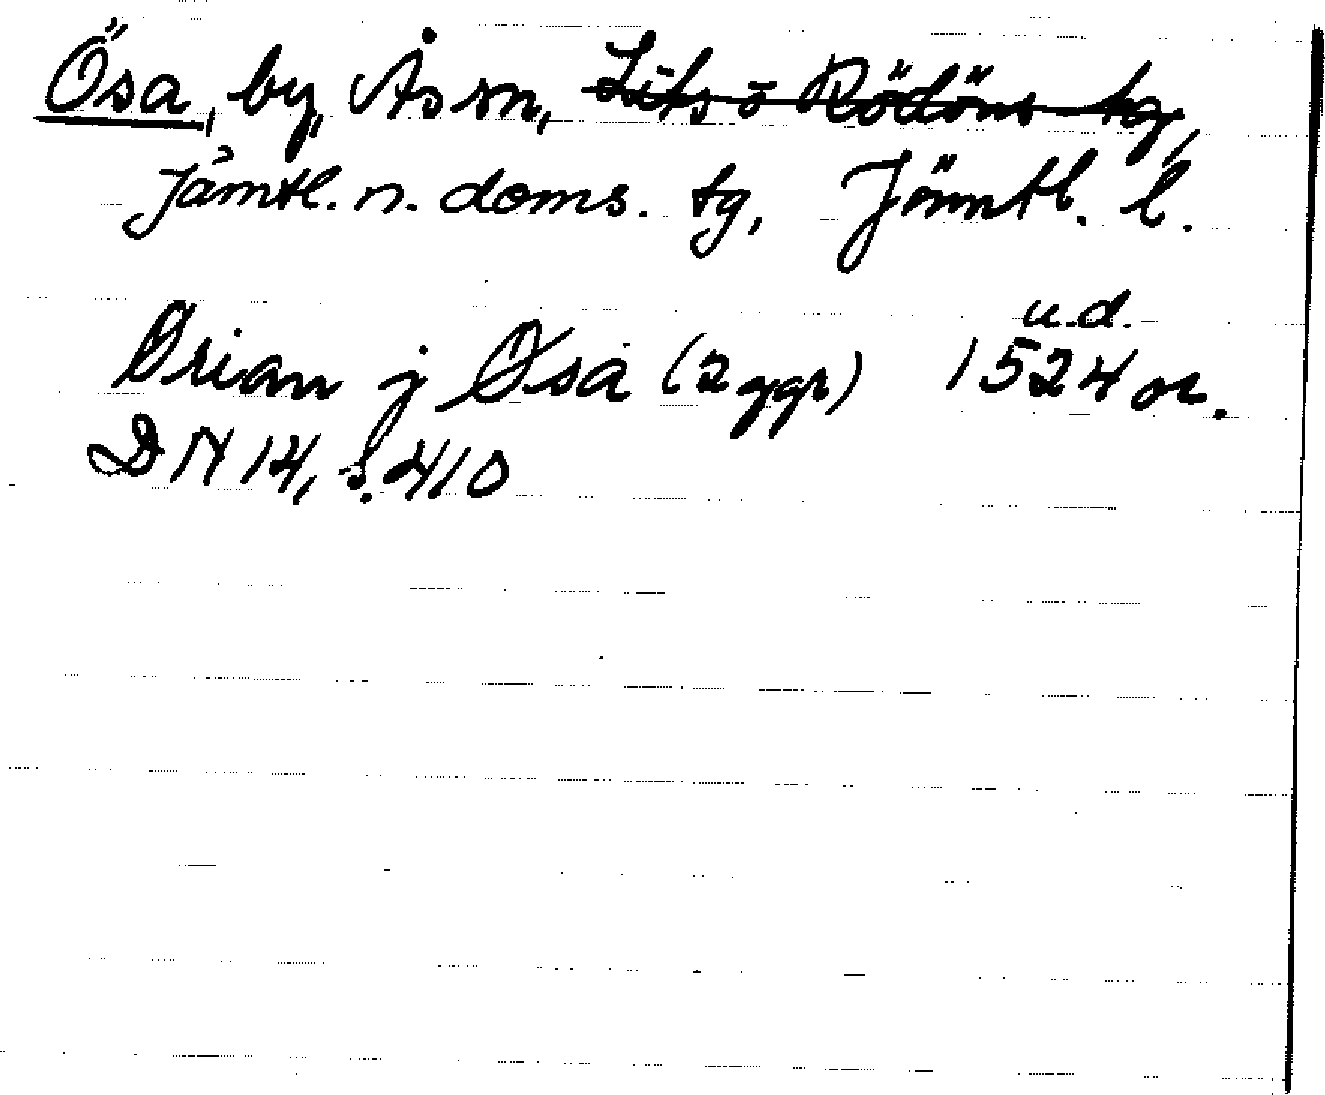 Ösa, by, Ås sn, Lits o Rödöns tg,
Jämtl. n. doms. tg, Jämtl. l.
u.d.
Ørian j Øsa (2 ggr) 1524 or.
DN 14, s. 410